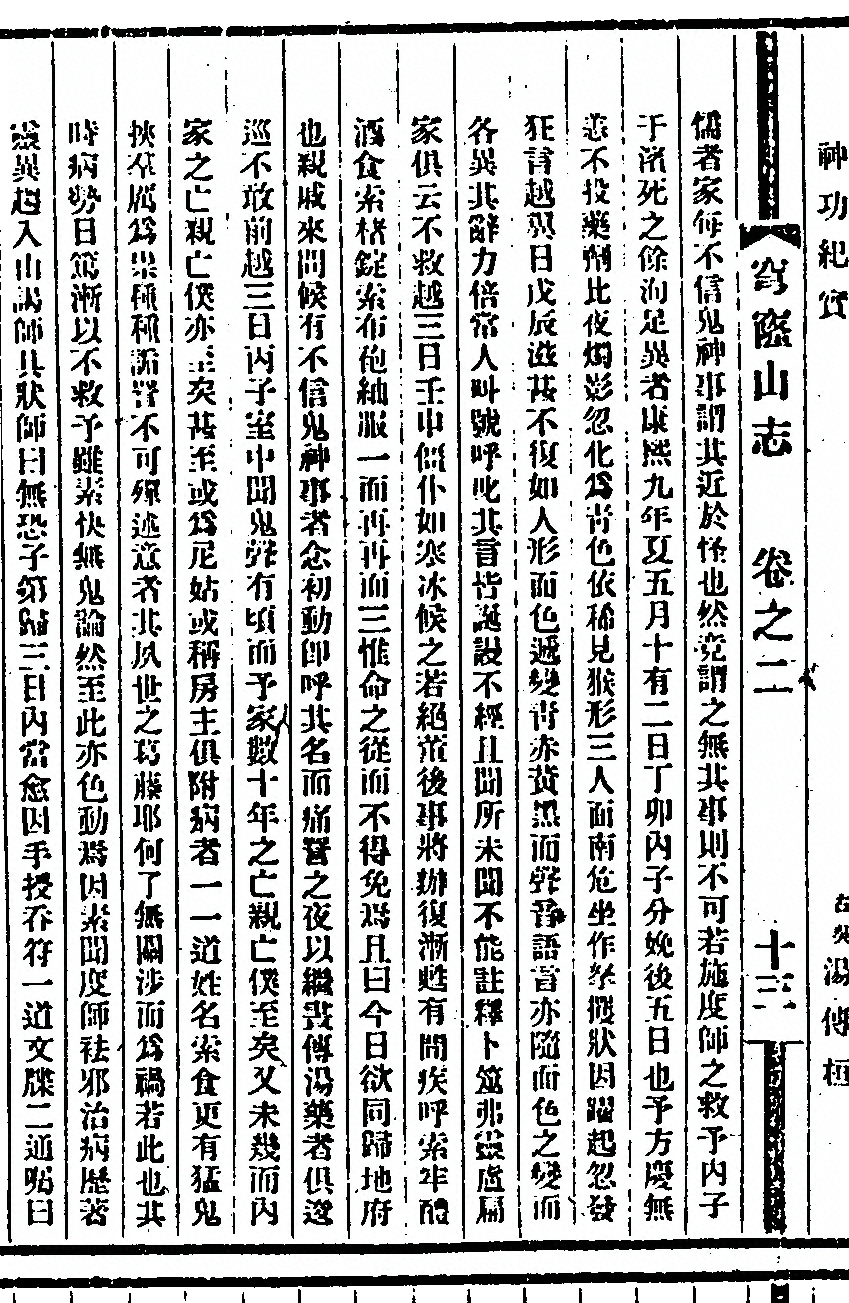 神功紀實
湯傳楹
穹窿山志 卷之二 十三
儒者家每不信鬼神事謂其近於怪也然竟謂之無其事則不可若施度師之救予內子
于濱死之餘洵足異者康熙九年夏五月十有二日丁卯內子分娩後五日也予方慶無
恙不投藥劑比夜燭影忽化為青色依稀見猴形三人面南危坐作祭饗狀因躍起忽發
狂言越翼日戊辰滋甚不復如人形面色遞變青赤黃黑而聲音語言亦隨面色之變而
各異其辭力倍常人叫號呼叱其言皆誕謾不經且聞所未聞不能註釋卜筮弗靈盧扁
家俱云不救越三日壬申僵仆如寒冰候之若絕董後事將辦復漸甦有問疾呼索牢醴
酒食索楮錠索布袍紬服一而再再而三惟命之從而不得免焉且曰今日欲同歸地府
也親戚來問候有不信鬼神事者念初動卽呼其名而痛詈之夜以繼晝傳湯藥者俱逡
巡不敢前越三日丙子室中聞鬼聲有頃而予家數十年之亡親亡僕至矣又未幾而內
家之亡親亡僕亦至矣甚至或為尼姑或稱房主俱附病者一一道姓名索食更有猛鬼
挾為祟種種詬詈不可殫述意者其夙世之葛藤耶何了無關涉而為禍若此也其
時病勢日篤漸以不救予雖素快無鬼論然至此亦色動焉因素聞度師袪邪治病歷著
靈異趨入山謁師具狀師曰無恐子第歸三日內當愈因手授吞符一道文牒二通囑曰